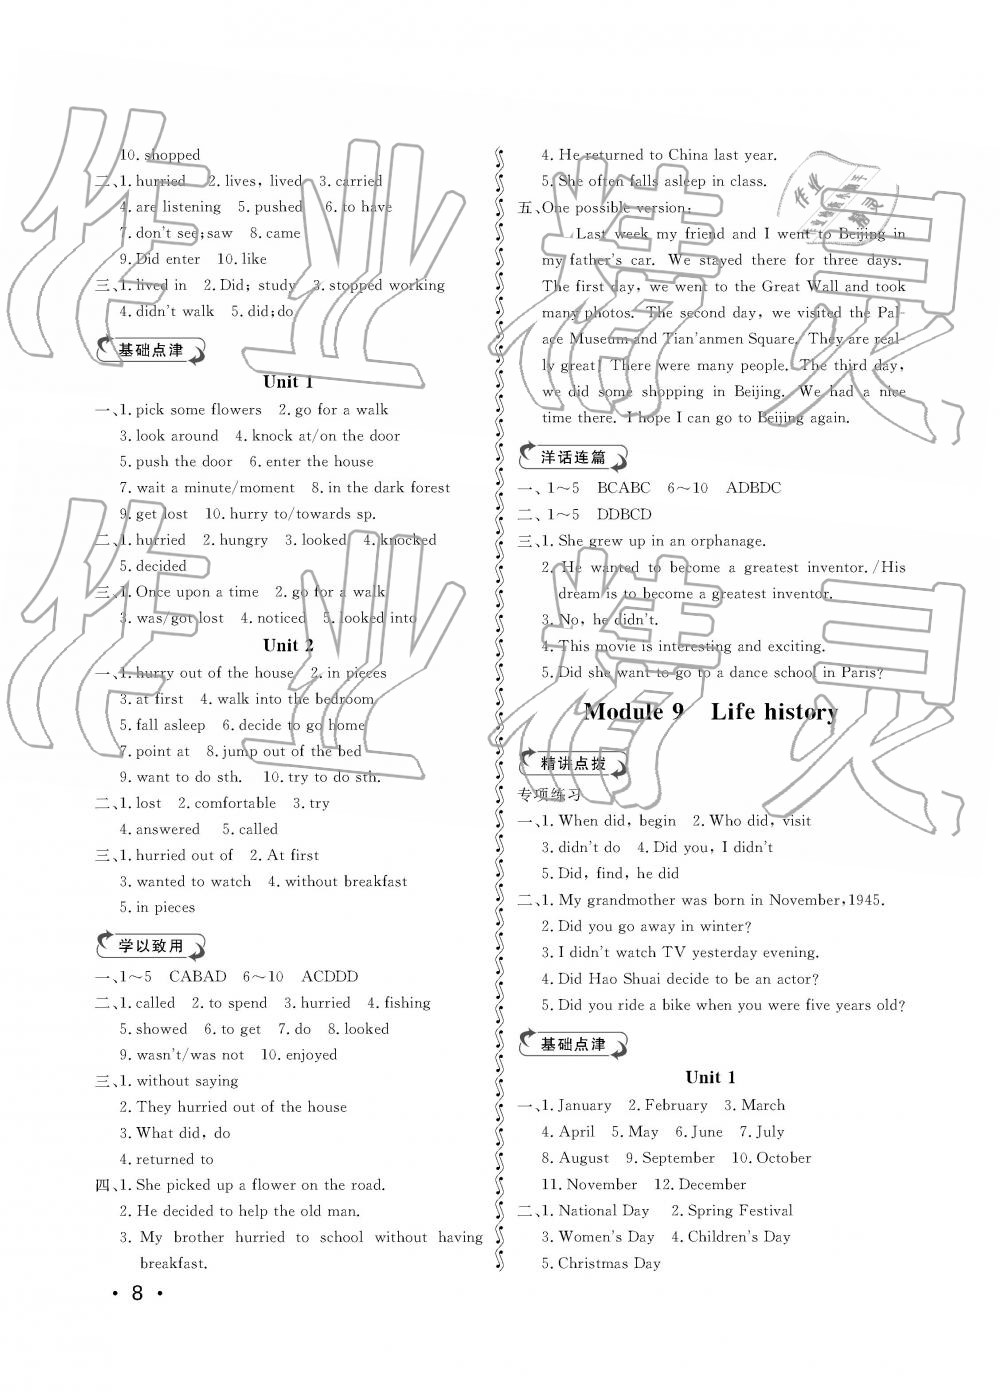 10. shopped
二、1. hurried 2. lives, lived 3. carried
4. are listening 5. pushed 6. to have
7. don't see;saw 8. came
9. Did enter 10. like
三、1. lived in 2. Did; study 3. stopped working
4. didn't walk 5. did;do
基础点津
Unit 1
一、1. pick some flowers 2. go for a walk
3. look around 4. knock at/on the door
5. push the door 6. enter the house
7. wait a minute/moment 8. in the dark forest
9. get lost 10. hurry to/towards sp.
二、1. hurried 2. hungry 3. looked 4. knocked
5. decided
三、1. Once upon a time 2. go for a walk
3. was/got lost 4. noticed 5. looked into
Unit 2
一、1. hurry out of the house 2. in pieces
3. at first 4. walk into the bedroom
5. fall asleep 6. decide to go home
7. point at 8. jump out of the bed
9. want to do sth. 10. try to do sth.
二、1. lost 2. comfortable 3. try
4. answered 5. called
三、1. hurried out of 2. At first
3. wanted to watch 4. without breakfast
5. in pieces
学以致用
一、1～5 CABAD 6～10 ACDDD
二、1. called 2. to spend 3. hurried 4. fishing
5. showed 6. to get 7. do 8. looked
9. wasn't/was not 10. enjoyed
三、1. without saying
2. They hurried out of the house
3. What did, do
4. returned to
四、1. She picked up a flower on the road.
2. He decided to help the old man.
3. My brother hurried to school without having
breakfast.
· 8 ·
4. He returned to China last year.
5. She often falls asleep in class.
五、One possible version:
Last week my friend and I went to Beijing in
my father's car. We stayed there for three days.
The first day, we went to the Great Wall and took
many photos. The second day, we visited the Pal-
ace Museum and Tian'anmen Square. They are real-
ly great! There were many people. The third day,
we did some shopping in Beijing. We had a nice
time there. I hope I can go to Beijing again.
洋话连篇
一、1～5 BCABC 6～10 ADBDC
二、1～5 DDBCD
三、1. She grew up in an orphanage.
2. He wanted to become a greatest inventor. /His
dream is to become a greatest inventor.
3. No, he didn't.
4. This movie is interesting and exciting.
5. Did she want to go to a dance school in Paris?
Module 9 Life history
精讲点拨
专项练习
一、1. When did, begin 2. Who did, visit
3. didn't do 4. Did you, I didn't
5. Did, find, he did
二、1. My grandmother was born in November,1945.
2. Did you go away in winter?
3. I didn't watch TV yesterday evening.
4. Did Hao Shuai decide to be an actor?
5. Did you ride a bike when you were five years old?
基础点津
Unit 1
一、1. January 2. February 3. March
4. April 5. May 6. June 7. July
8. August 9. September 10. October
11. November 12. December
二、1. National Day 2. Spring Festival
3. Women's Day 4. Children's Day
5. Christmas Day
作业精灵
作业精灵